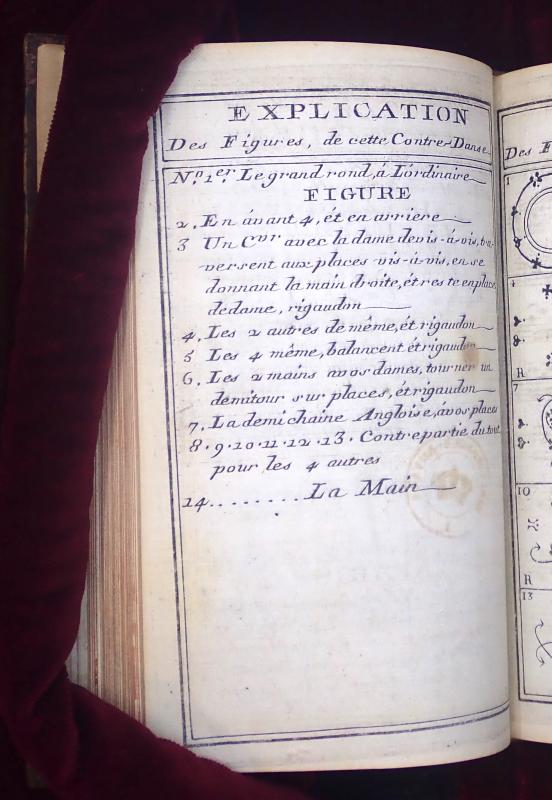 EXPLICATION
Des Figures, de cette Contre-Danse
N.º 1.er Le grand rond, á L'ordinaire
FIGURE
2. En ávant 4, ét en arriere
3 Un C.vr avec la dame de vis-á-vis, tra-
versent aux places vis-á-vis, en se
donnant la main droite, ét reste en place
de dame, rigaudon
4. Les 2 autres de même, ét rigaudon
5 Les 4 même, balancent ét rigaudon
6. Les 2 mains a vos dames, tourner un
demi tour sur places, ét rigaudon
7. La demi chaine Angloise, á vos places
8. 9. 10. 11. 12. 13. Contre partie du tout
pour les 4 autres
14........ La Main
Des F
1
4
R
7
10
R
13